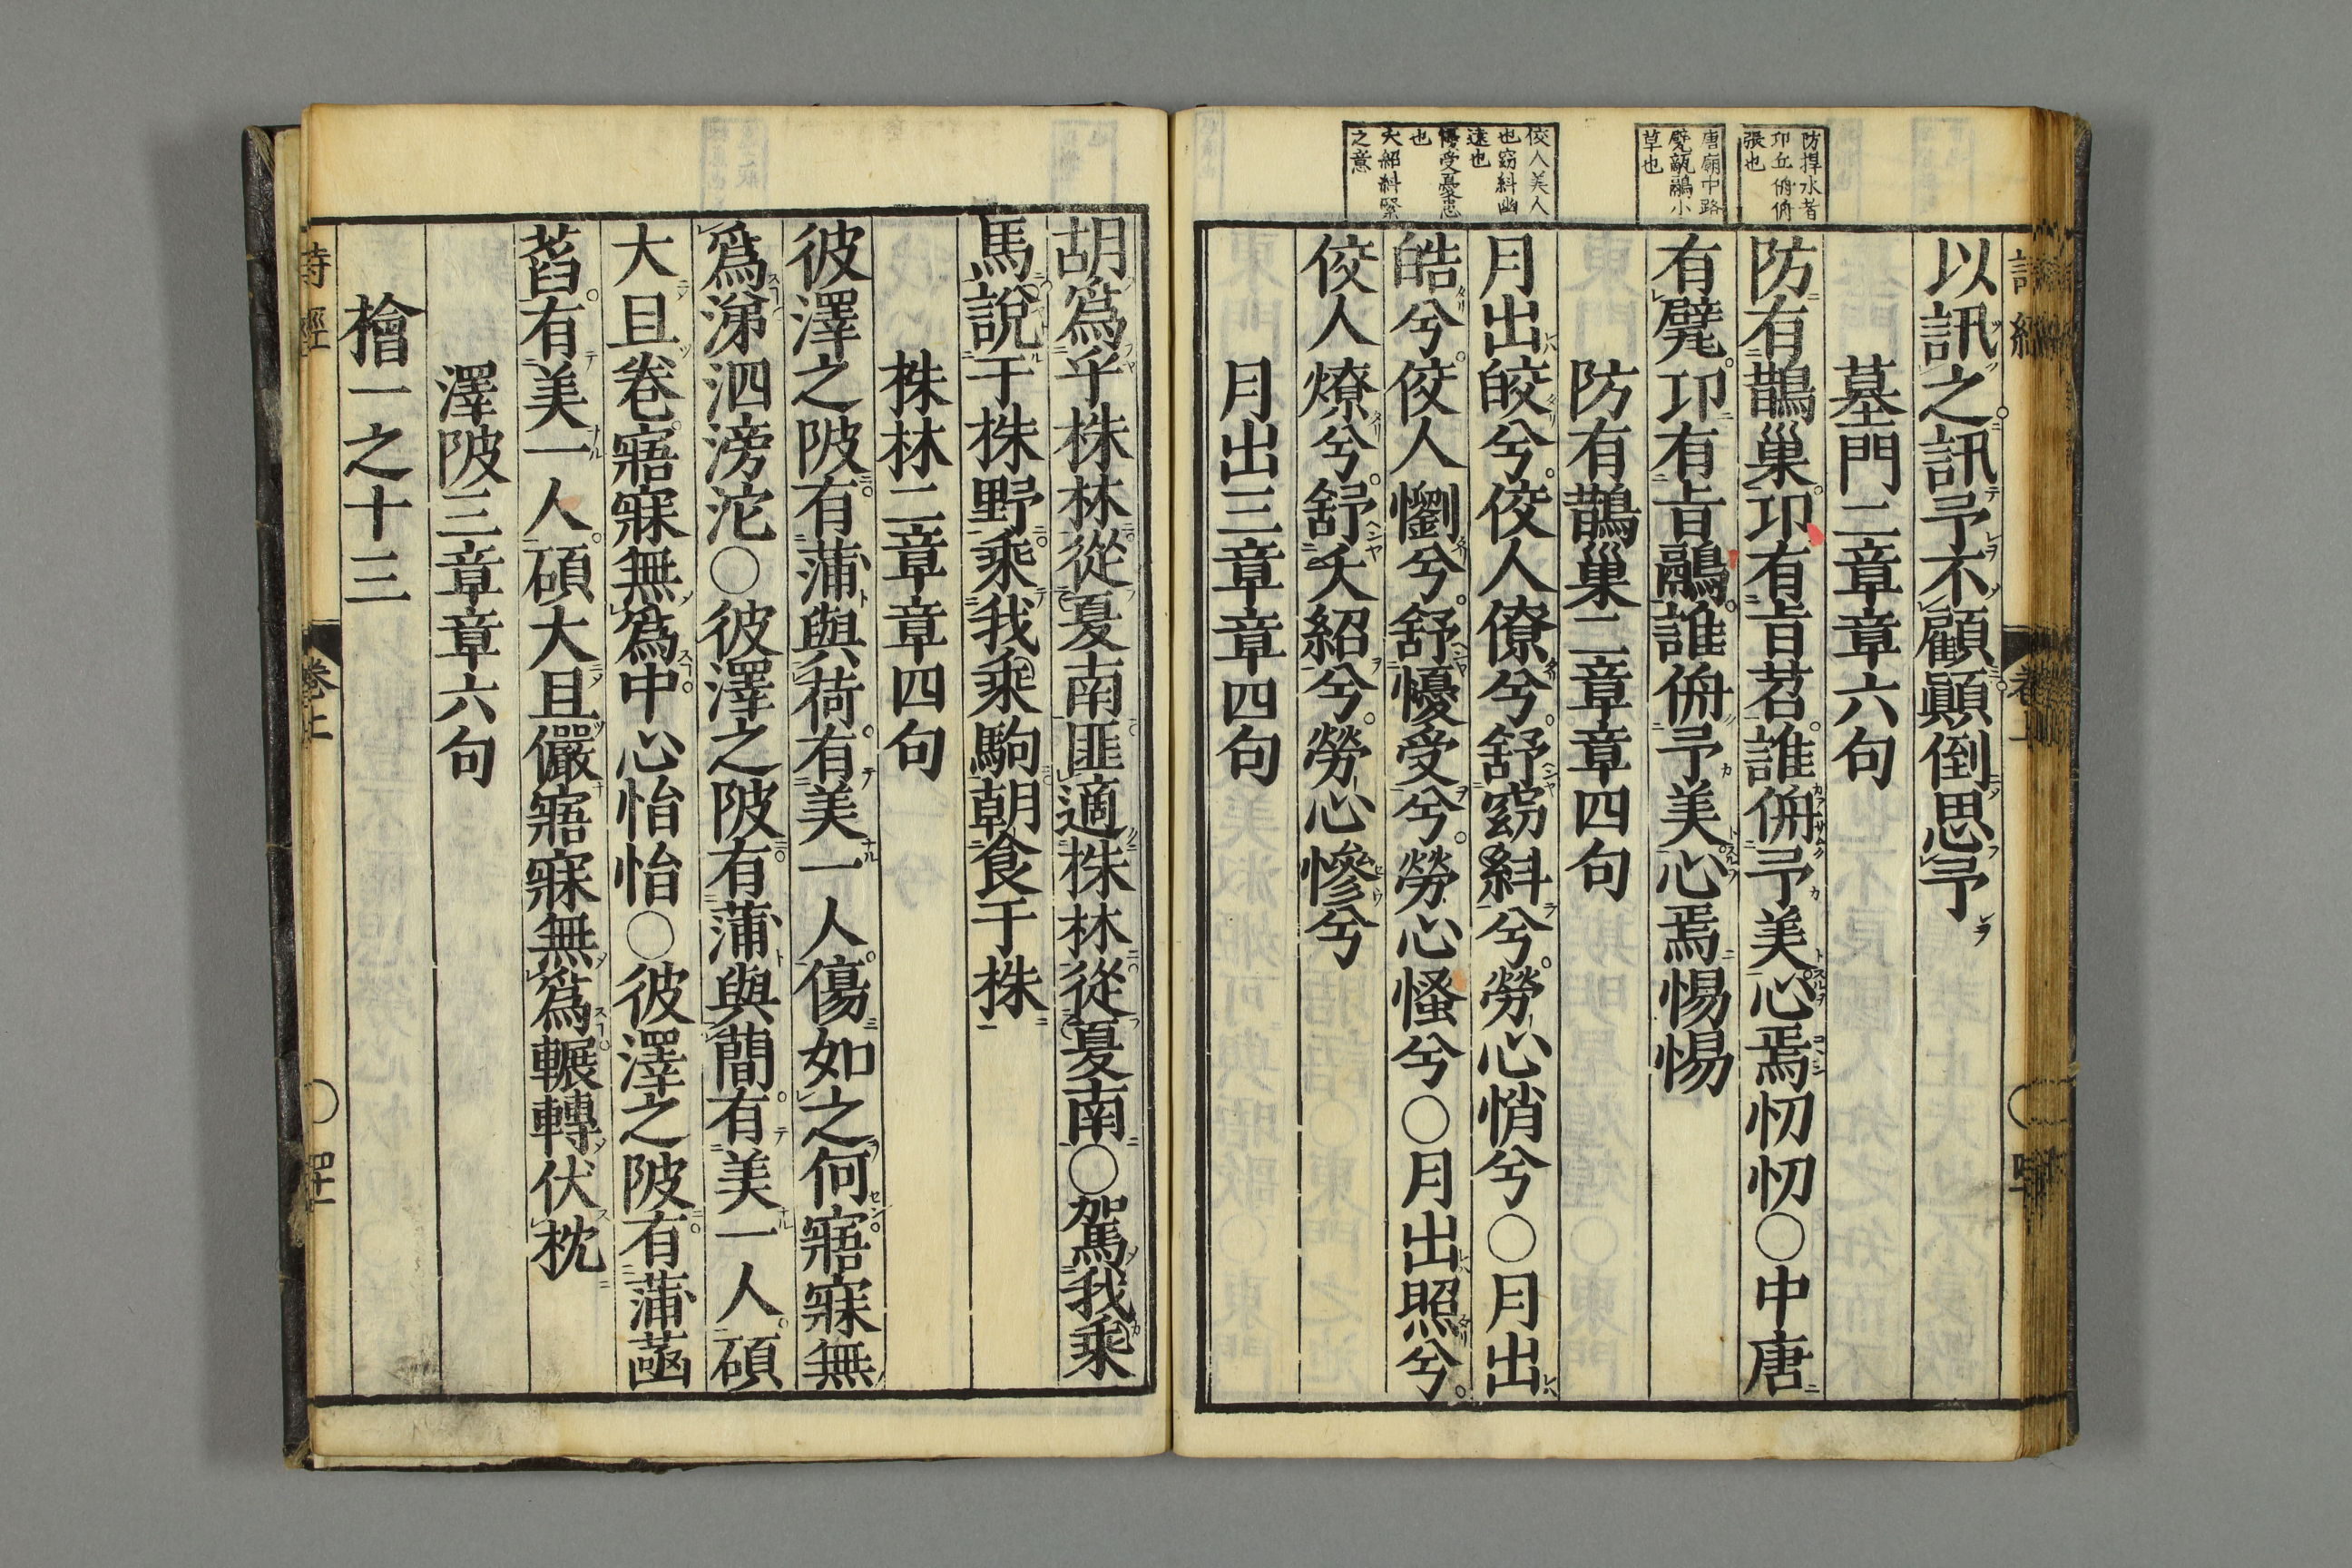 防捍水者
卭丘侜侜
張也
唐廟中路
甓瓴鷊小
草也
佼人美人
也窈糾幽
遠也
懮受憂思
也
夭紹糾緊
之意
以訊之訊予不顧顚倒思予
墓門二章章六句
防有鵲巢卭有旨苕誰侜予美心焉忉忉○中唐
有甓卭有旨鷊誰侜予美心焉惕惕
防有鵲巢二章章四句
月出皎兮佼人僚兮舒窈糾兮勞心悄兮○月出
皓兮佼人懰兮舒懮受兮勞心慅兮○月出照兮
佼人燎兮舒夭紹兮勞心慘兮
月出三章章四句
胡爲乎株林從夏南匪適株林從夏南○駕我乘
馬說于株野乘我乘駒朝食于株
株林二章章四句
彼澤之陂有蒲與荷有美一人傷如之何寤寐無
爲涕泗滂沱○彼澤之陂有蒲與蕑有美一人碩
大且卷寤寐無爲中心悁悁○彼澤之陂有蒲菡
萏有美一人碩大且儼寤寐無爲輾轉伏枕
澤陂三章章六句
檜一之十三
詩經
卷上